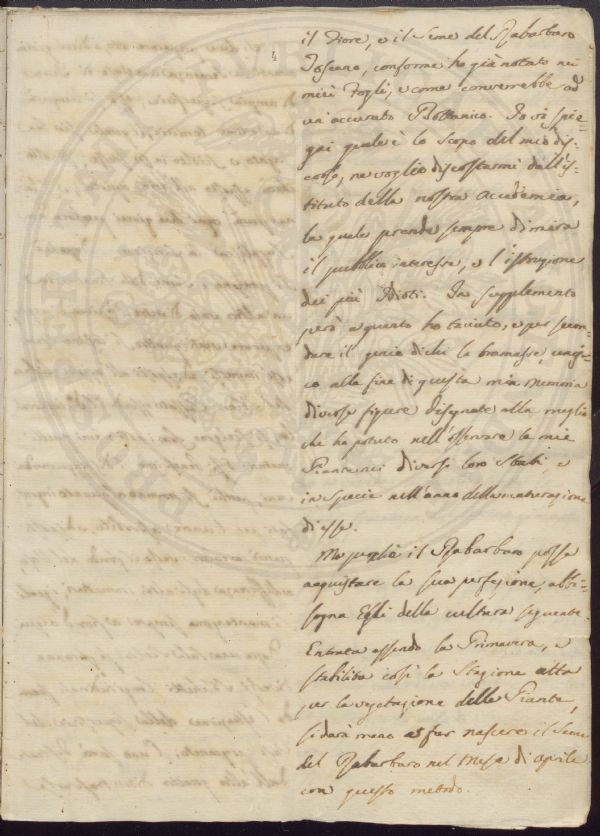 4
il Fiore, e il Seme del Rabarbaro
Toscano, conforme ho già notato nei
miei Fogli, e come converrebbe ad
un'accurato Bottanico. Io vi spie=
gai qual'è lo scopo del mio dis=
corso, ne voglio discostarmi dall'is=
tituto della nostra Accademia,
la quale prende sempre di mira
il pubblico interesse, e l'istruzione
dei più Idioti. In supplemento
però a quanto ho taciuto, e per secon=
dare il genio di chi la bramasse, unis=
co alla fine di questa mia memoria
diverse figure disegnate alla meglio
che ho potuto nell'osservare le mie
Piante nei diversi loro Stati, e
in specie nell'anno della maturazione
di esse.
Ma perchè il Rabarbaro possa
acquistare la sua perfezione, abbi=
sogna Egli della cultura seguente.
Entrata essendo la Primavera, e
stabilita così la Stagione atta
per la vegetazione delle Piante,
si darà mano a far nascere il Seme
del Rabarbaro nel Mese di Aprile
con questo metodo.